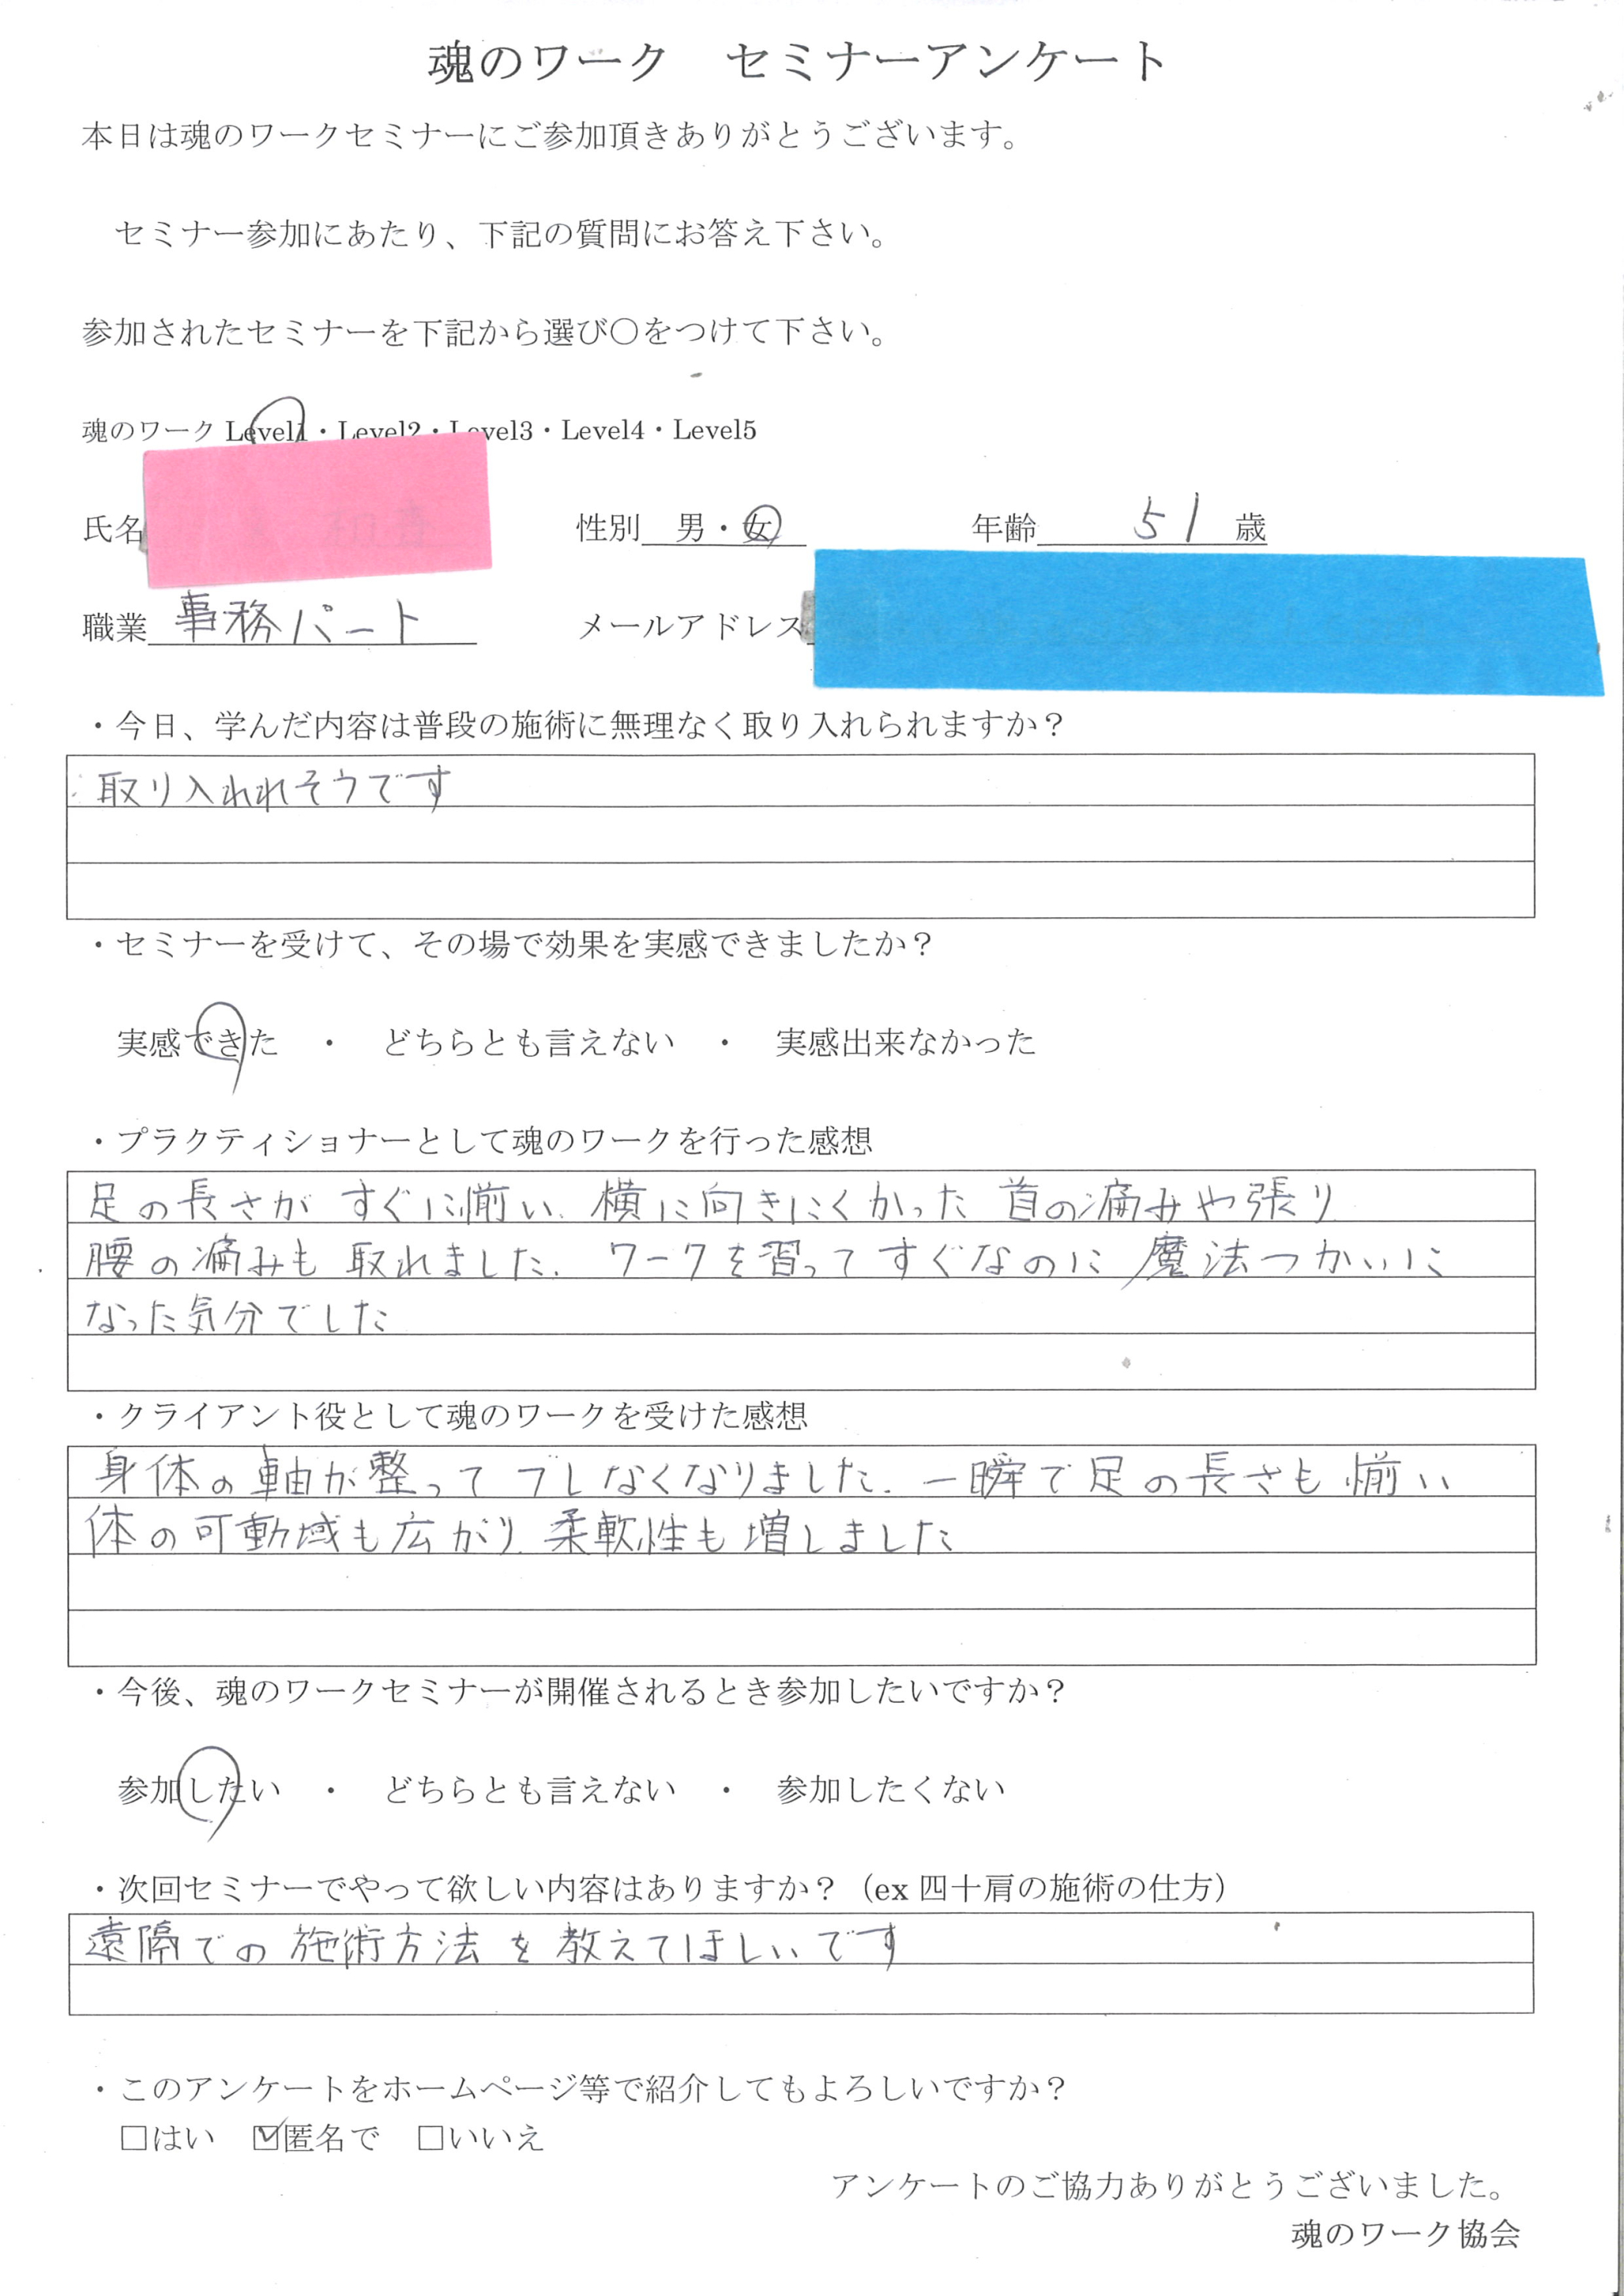 魂のワーク　セミナーアンケート
本日は魂のワークセミナーにご参加頂きありがとうございます。
セミナー参加にあたり、下記の質問にお答え下さい。
参加されたセミナーを下記から選び〇をつけて下さい。
魂のワーク Level1・Level2・Level3・Level4・Level5
氏名　性別　男・女　年齢　51　歳
職業　事務パート　メールアドレス
・今日、学んだ内容は普段の施術に無理なく取り入れられますか？
取り入れれそうです
・セミナーを受けて、その場で効果を実感できましたか？
実感できた　・　どちらとも言えない　・　実感出来なかった
・プラクティショナーとして魂のワークを行った感想
足の長さが すぐに揃い、横に向きにくかった 首の痛みや張り
腰の痛みも 取れました。ワークを習ってすぐなのに 魔法つかいに
なった気分でした
・クライアント役として魂のワークを受けた感想
身体の軸が整って ブレなくなりました。一瞬で足の長さも揃い
体の可動域も広がり 柔軟性も増しました
・今後、魂のワークセミナーが開催されるとき参加したいですか？
参加したい　・　どちらとも言えない　・　参加したくない
・次回セミナーでやって欲しい内容はありますか？（ex 四十肩の施術の仕方）
遠隔での 施術方法を教えてほしいです
・このアンケートをホームページ等で紹介してもよろしいですか？
□はい　☑匿名で　□いいえ
アンケートのご協力ありがとうございました。
魂のワーク協会